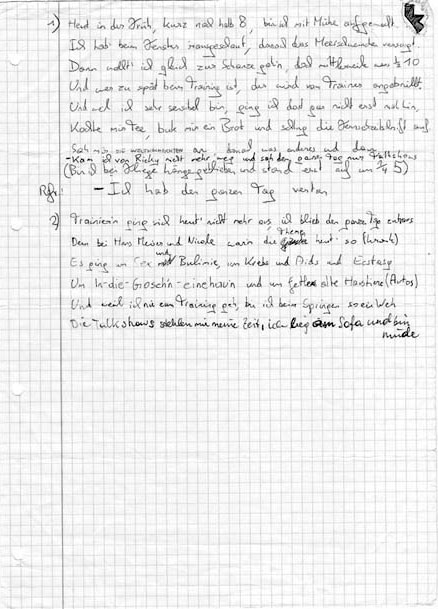 1) Heut in der Früh, kurz nach halb 8, bin ich mit Mühe aufgewacht
Ich hab beim Fenster rausgeschaut, danach das Meerschweinchen versorgt
Dann wollt' ich gleich zur Schanze gehn, doch mittlerweile war's ½ 10
Und wer zu spät beim Training ist, der wird vom Trainer angebrüllt.
Und weil ich sehr sensibel bin, ging ich dort gar nicht erst noch hin,
Kochte mir Tee, buk mir ein Brot und schlug die Fernsehzeitschrift auf
Sah mir die an danach was anderes und dann
- Kam ich von Ricky nicht mehr weg und sah den ganzen Tag nur Talkshows
(Bin ich bei Fliege hängengeblieben und stand erst auf um ¼ 5)
Rfr: - Ich hab den ganzen Tag vertan
2) Trainier'n ging sich heut' nicht mehr aus ich blieb den ganzen Tag zuhaus
Denn bei Hans Meiser und Nicole warn die Themen heut' so (krank)
Es ging um Sex und Bulimie, um Krebs und Aids und Ecstasy
Um In-die-Gosch'n-einehau'n und um fette alte Haustiere (Autos)
Und weil ich nie zum Training geh, bin ich beim Springen so ein Weh
Die Talkshows stehlen mir meine Zeit, ich lieg am Sofa und bin
müde